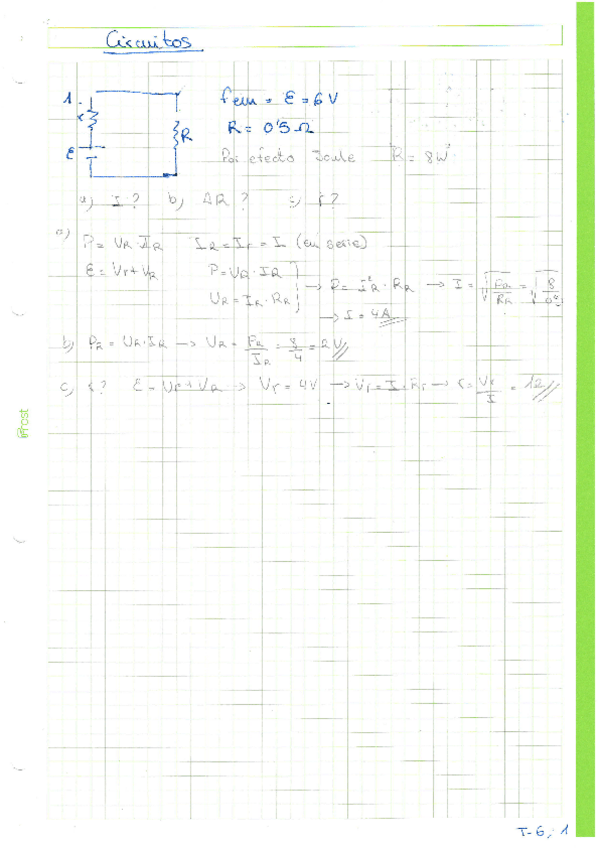 Circuitos
1.
r
ε
R
fem = ε = 6 V
R = 0'5 Ω
Por efecto Joule R = 8W
a) I? b) ΔR? c) r?
a) P = VR·IR IR = Ir = I (en serie)
ε = Vr + VR P = VR·IR
VR = IR·RR → P = I²R·RR → I = √PR/RR = √8/0'5
→ I = 4A
b) PR = VR·IR → VR = PR/IR = 8/4 = 2V
c) r? ε = Vr + VR → Vr = 4V → Vr = I·Rr → r = Vr/I = 1Ω
Frost
T-6, 1